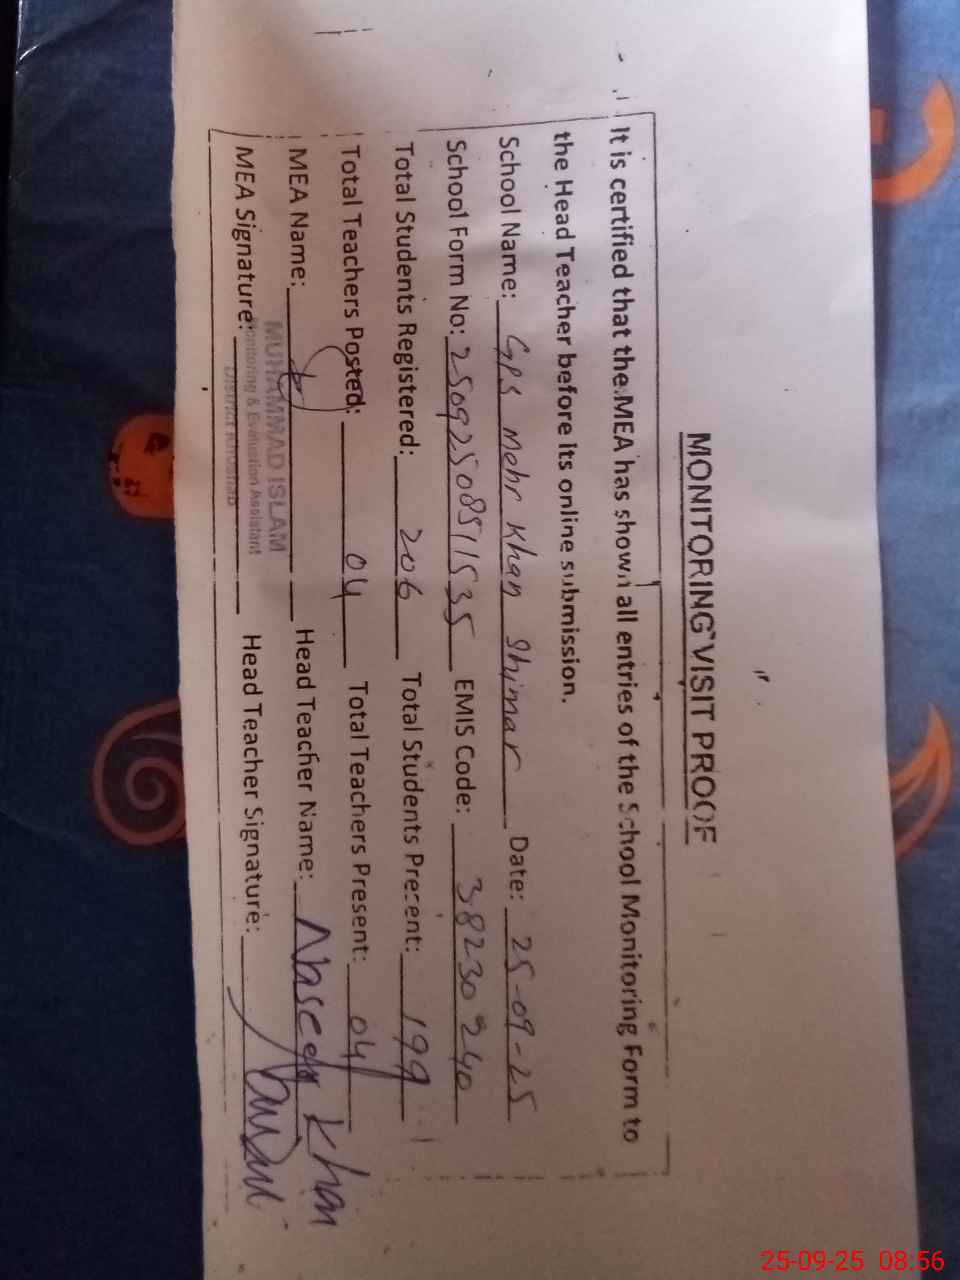 MONITORING VISIT PROOF
It is certified that the MEA has shown all entries of the School Monitoring Form to
the Head Teacher before its online submission.
School Name: GPS Mehr Khan Shimar Date: 25-09-25
School Form No: 25092508511535 EMIS Code: 38230240
Total Students Registered: 206 Total Students Precent: 199
Total Teachers Posted: 04 Total Teachers Present: 04
MEA Name: Head Teacher Name: Naseer Khan
MUHAMMAD ISLAM
MEA Signature: Head Teacher Signature:
Monitoring & Evaluation Assistant
District
25-09-25 08:56